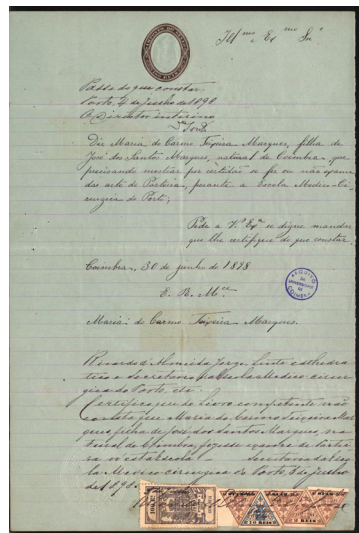 Ill.mo e Ex.mo Sr.
Passe do que constar.
Porto, 4 de julho de 1898
O Director interino
Diz Maria do Carmo Teixeira Marques, filha de
José dos Santos Marques, natural de Coimbra, que
precisando mostrar por certidão se fez ou não exame
das arte de Parteira, perante a Escola Medico-Ci-
rurgica do Porto;
Pede a V.ª Ex.ª se digne mandar
que lhe certifique do que constar.
Coimbra, 30 de junho de 1898
E. R. M.ce
Maria do Carmo Teixeira Marques.
ARQUIVO
DA
UNIVERSIDADE
DE
COIMBRA
Ricardo d'Almeida Jorge, lente cathedra
tico e secretario da Escola Medico-cirur
gica do Porto, etc.
Certifico que do livro competente não
consta que Maria do Carmo Teixeira Mar
ques, filha de José dos Santos Marques, na
tural de Coimbra, fizesse exame de partei
ra n'esta Escola. Secretaria da Esco
la Medico-cirurgica do Porto, 5 de julho
de 1898.
10 REIS